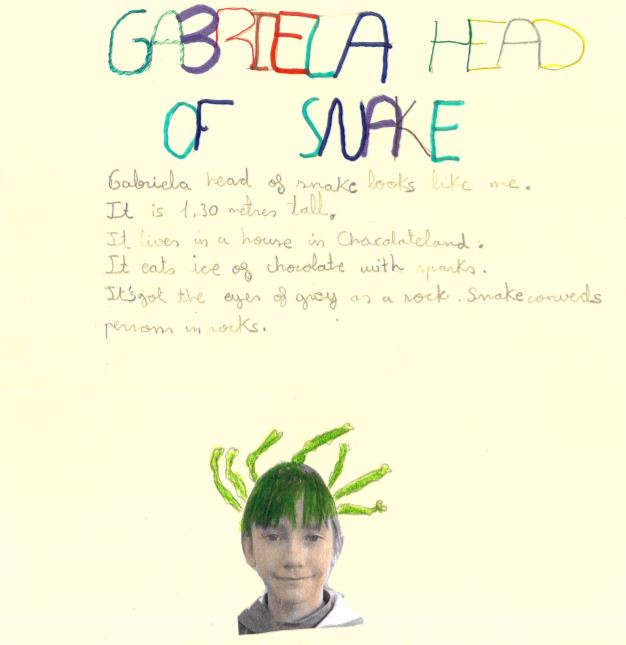 GABRIELA HEAD
OF SNAKE
Gabriela head of snake looks like me.
It is 1,30 metres tall.
It lives in a house in Chacalateland.
It eats ice of chocolate with sparks.
It's got the eyes of grey as a rock. Snake converds
persons in rocks.